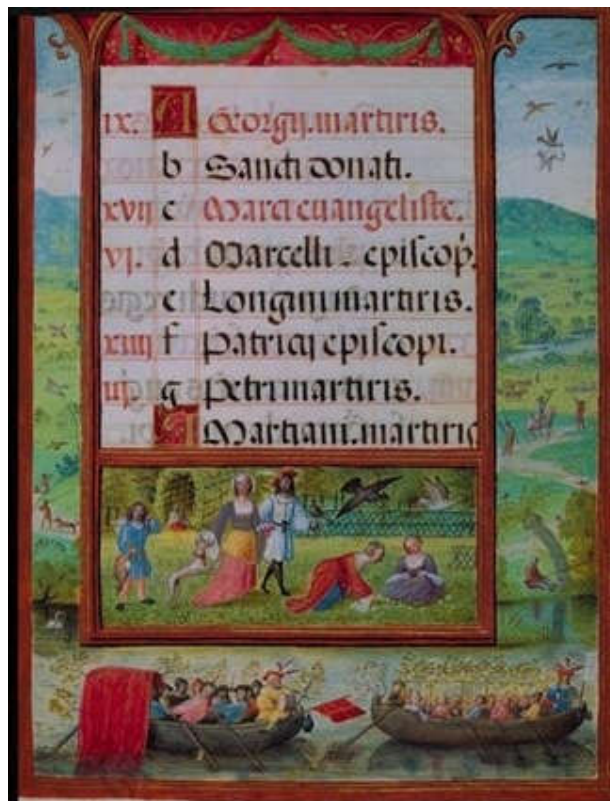 ix. A Georgij. martiris.
b Sancti donati.
xvij c Marci euangeliste.
vj. d Marcelli. episcop.
e Longini martiris.
xiiij f Patricij episcopi.
iij. g Petri martiris.
A Martiani. martiris